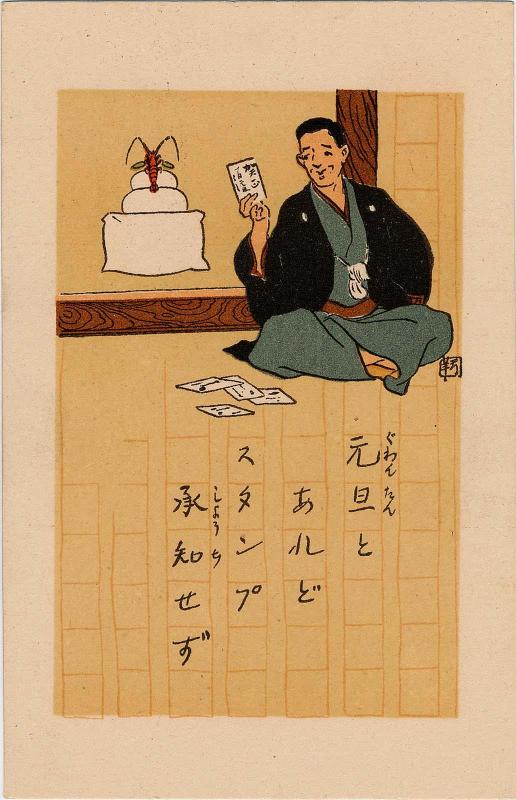 賀正
元旦と
ぐわんたん
あれど
スタンプ
承知せず
しようち